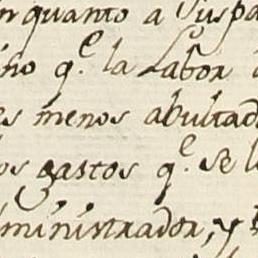 nquanto a Suspa
ino q.e la Labor
es menos abultad
os gastos q.e se l
dministrador, y